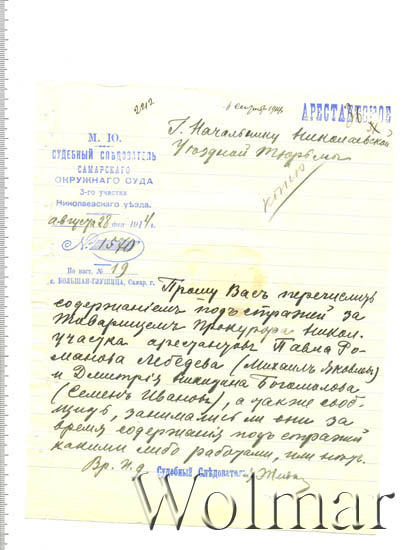 2212
1 сент. 1914
АРЕСТАНТСКОЕ
Г. Начальнику Николаевской
Уѣздной Тюрьмы
копiю
М. Ю.
СУДЕБНЫЙ СЛѢДОВАТЕЛЬ
САМАРСКАГО
ОКРУЖНАГО СУДА
3-го участка
Николаевскаго уѣзда.
августа 28 дня 1914 г.
№ 1570
По наст. № 19
с. БОЛЬШАЯ-ГЛУШИЦА, Самар. г.
Прошу Васъ перечислить
содержанiемъ подъ стражей за
Товарищемъ Прокурора Никол.
участка арестантовъ Павла Ро-
манова Лебедева (Михаилъ Яковлевъ)
и Дмитрiя Никитина Богомолова
(Семенъ Ивановъ), а также сооб-
щить, занимались ли они за
время содержанiя подъ стражей
какими либо работами, или нѣтъ.
Вр. И. д. Судебный Слѣдователь
Wolmar